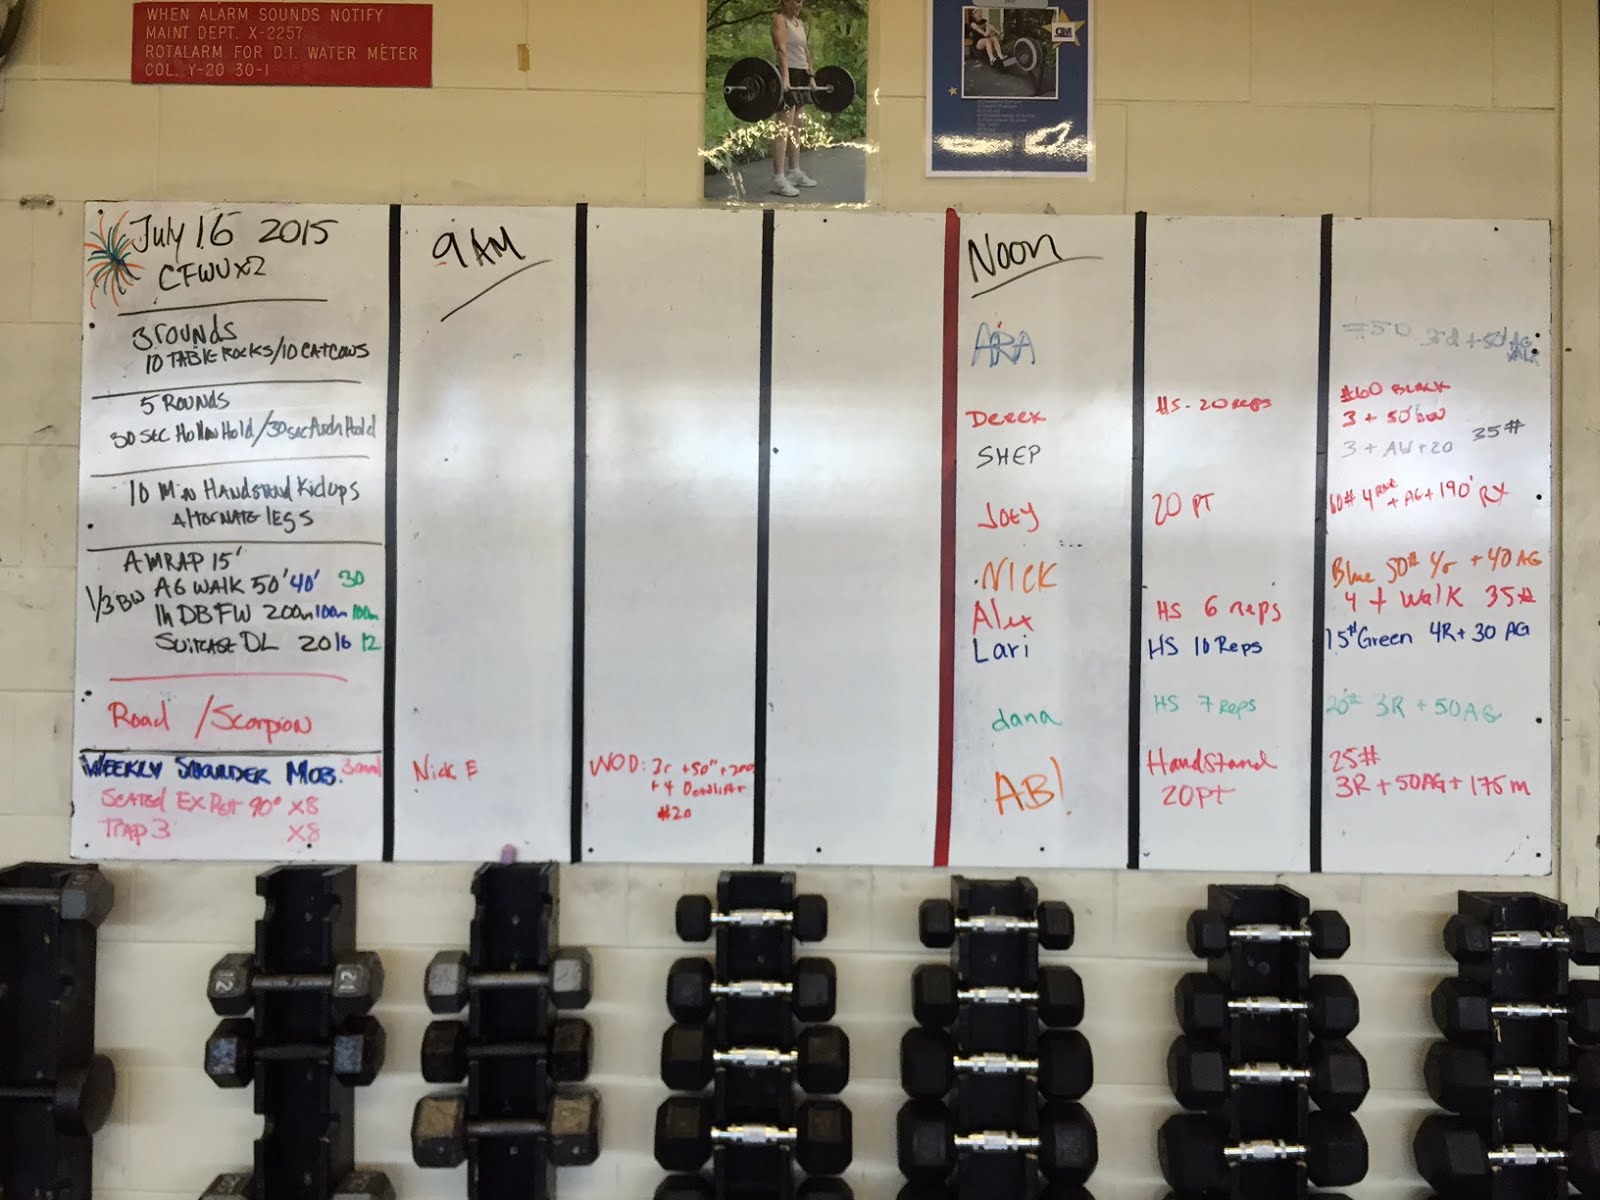 WHEN ALARM SOUNDS NOTIFY
MAINT. DEPT. X-2257
ROTALARM FOR D.I. WATER METER
COL. Y-20 30-1
July 16 2015
CFWU x2
3 rounds
10 TABLE ROCKS/10 CATCOWS
5 ROUNDS
30 sec Hollow Hold/30sec Arch Hold
10 Min Handstand Kickups
Alternate legs
AMRAP 15'
1/3 BW AG WALK 50' 40' 30
1h DB FW 200m 100m 100m
Suitcase DL 20 16 12
Road /Scorpion
WEEKLY SHOULDER MOB.
Seated Ex Rot 90° x8
Trap 3 x8
9 AM
Nick E
WOD: 3r +50" + 200
+4 Deadlift
#20
Noon
ARA
Derek HS - 20 reps #60 BLACK
3 + 50' bw
SHEP 3 + AW+20 35#
Joey 20 PT 60# 4 + AG + 190' RX
NICK Blue 50# 4r + 40 AG
Alex HS 6 reps 4 + Walk 35#
Lari HS 10 Reps 15# Green 4R + 30 AG
dana HS 7 Reps 20# 3R + 50AG
AB! Handstand 25#
20PT 3R + 50AG + 175m